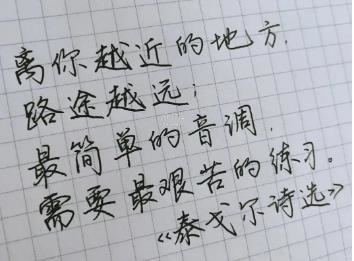 离你越近的地方，
路途越远；
最简单的音调，
需要最艰苦的练习。
《泰戈尔诗选》